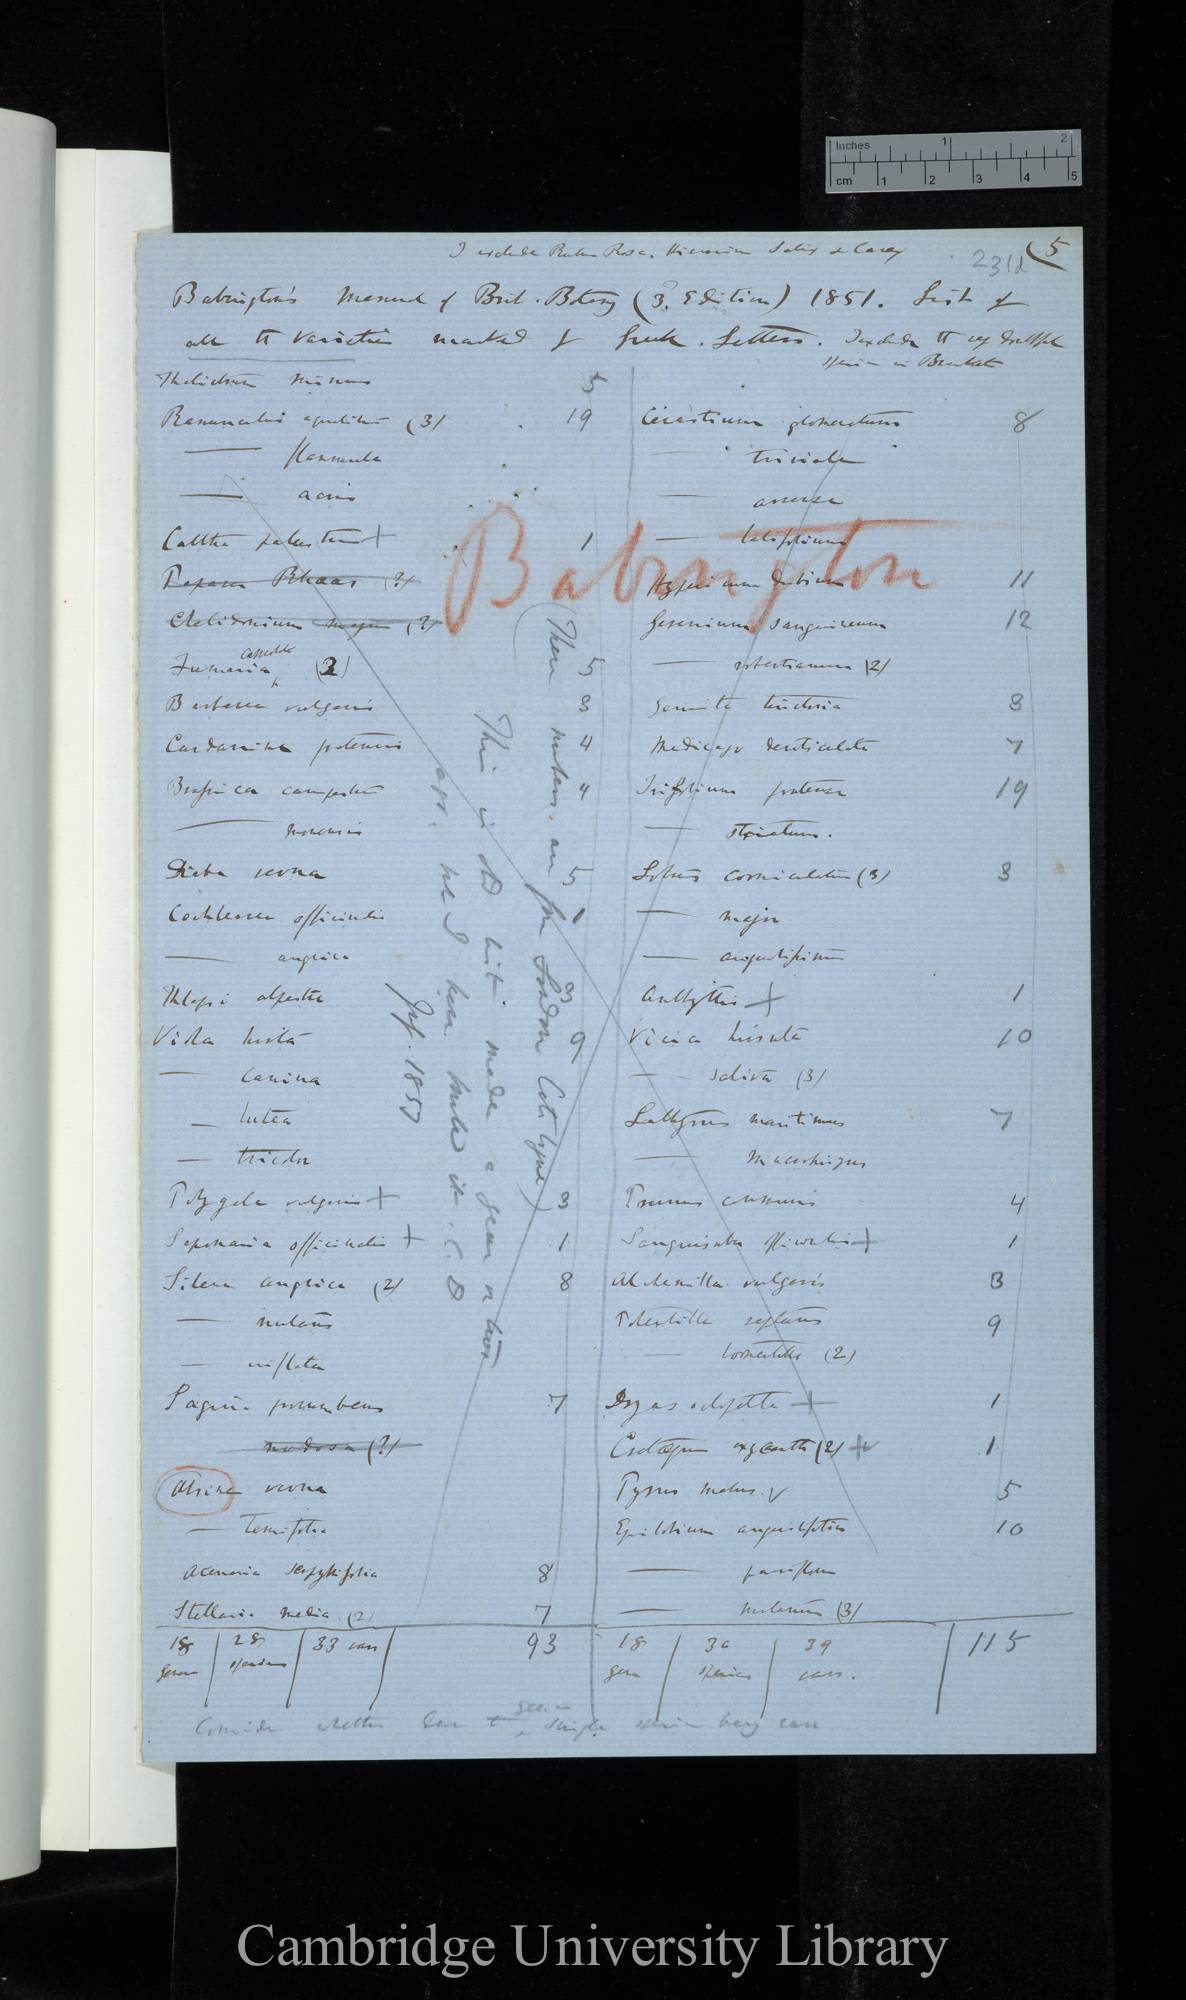 Inches 1 2
cm 1 2 3 4 5
I exclude Rubus Rosa. Hieracium Salix & Carex
231d (5
Babington's Manual of Brit. Botany (3. Edition) 1851. List of
all the varieties marked by Greek. Letters. I exclude the
species in Brackets
Thalictrum minus 5
Ranunculus aquatilis (3) 19
—— flammula
—— acris
Caltha palustris + 1
Papaver Rhoeas (?)
Chelidonium majus (?)
Fumaria capreolata (2) 5
Barbarea vulgaris 3
Cardamine pratensis 4
Brassica campestris 4
—— monensis
Draba verna 5
Cochlearia officinalis 1
—— anglica
Thlaspi alpestre 3
Viola hirta 9
—— canina
— lutea
— tricolor
Polygala vulgaris + 3
Saponaria officinalis + 1
Silene anglica (2) 8
—— nutans
—— inflata
Sagina procumbens 7
nodosa (?)
Alsine verna
—— tenuifolia
Arenaria serpyllifolia 8
Stellaria media (2) 7
18 genera | 28 species | 33 vars | 93
Cerastium glomeratum 8
—— triviale
—— arvense
—— latifolium
Hypericum dubium 11
Geranium sanguineum 12
—— robertianum (2)
Genista tinctoria 3
Medicago denticulata 7
Trifolium pratense 19
—— strictum.
Lotus corniculatus (3) 3
—— major
—— angustissimus
Anthyllis + 1
Vicia hirsuta 10
—— sativa (3)
Lathyrus maritimus 7
—— macrorhizus
Prunus communis 4
Sanguisorba officinalis + 1
Alchemilla vulgaris 3
Potentilla reptans 9
—— tormentilla (2)
Dryas octopetala + 1
Crataegus oxyacantha (2) + 1
Pyrus malus. v 5
Epilobium angustifolium 10
—— parviflorum
—— (3)
18 gen | 30 species | 39 vars. | 115
Babington
(These numbers are from London Catalogue)
This is old list. made a year or two
ago. but I have it. C. D
July. 1857
Consider whether genera single species being vars
Cambridge University Library